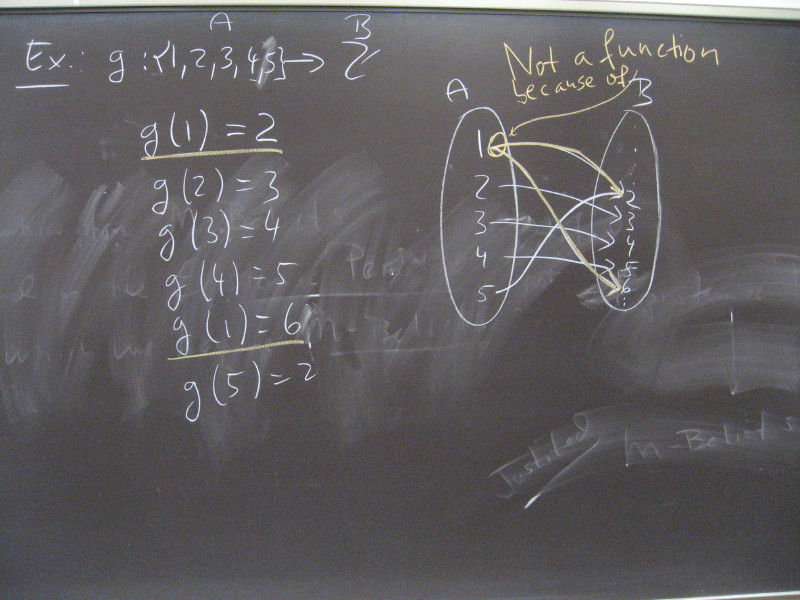 A
B
Ex.: g : {1, 2, 3, 4, 5} → ℤ
g(1) = 2
g(2) = 3
g(3) = 4
g(4) = 5
g(1) = 6
g(5) = 2
Not a function
because of
A
B
1
2
3
4
5
2
3
4
5
6
Justified